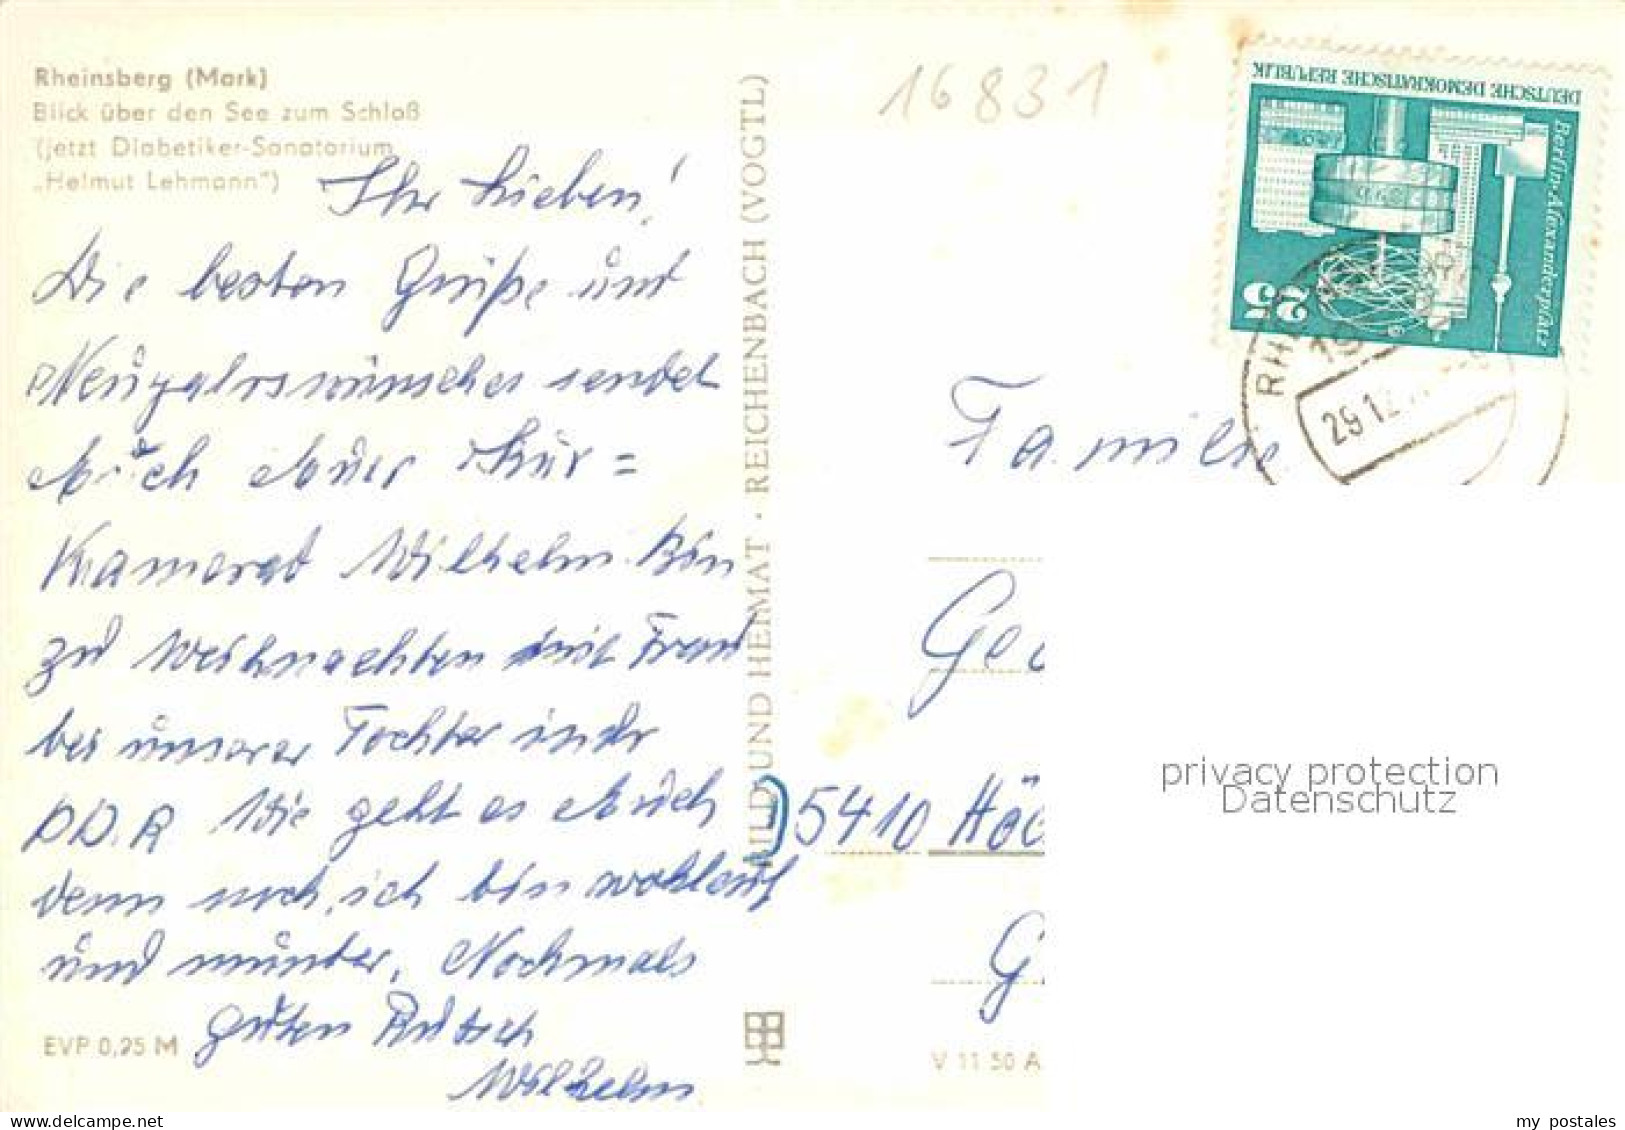 Rheinsberg (Mark)
Blick über den See zum Schloß
(jetzt Diabetiker-Sanatorium
„Helmut Lehmann")
Ihr Lieben!
Die besten Grüße und
Neujahrswünsche sendet
Euch Euer Kur=
Kamerad Wilhelm. Bin
zu Weihnachten mit Frau
bei unserer Tochter in der
DDR Wie geht es Euch
denn noch, ich bin wohlauf
und munter. Nochmals
guten Rutsch
Wilhelm
EVP 0,25 M
BILD UND HEIMAT · REICHENBACH (VOGTL)
16831
DEUTSCHE DEMOKRATISCHE REPUBLIK
Berlin-Alexanderplatz
25
RH
29.12.
Familie
5410 Hö
G
V 11 50 A
privacy protection
Datenschutz
delcampe.net
my_postales